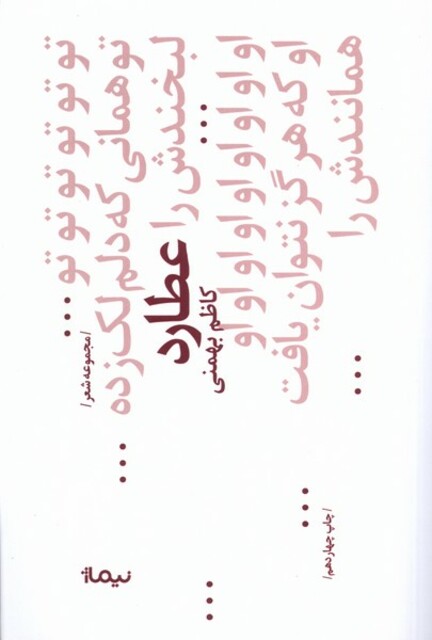 تو تو تو تو تو تو ...
تو همانی که دلم لک زده ...
لبخندش را
عطارد
کاظم بهمنی
/مجموعه شعر/
... او او او او او او او او او
او که هرگز نتوان یافت ...
همانندش را ...
/چاپ چهاردهم/
نیماژ